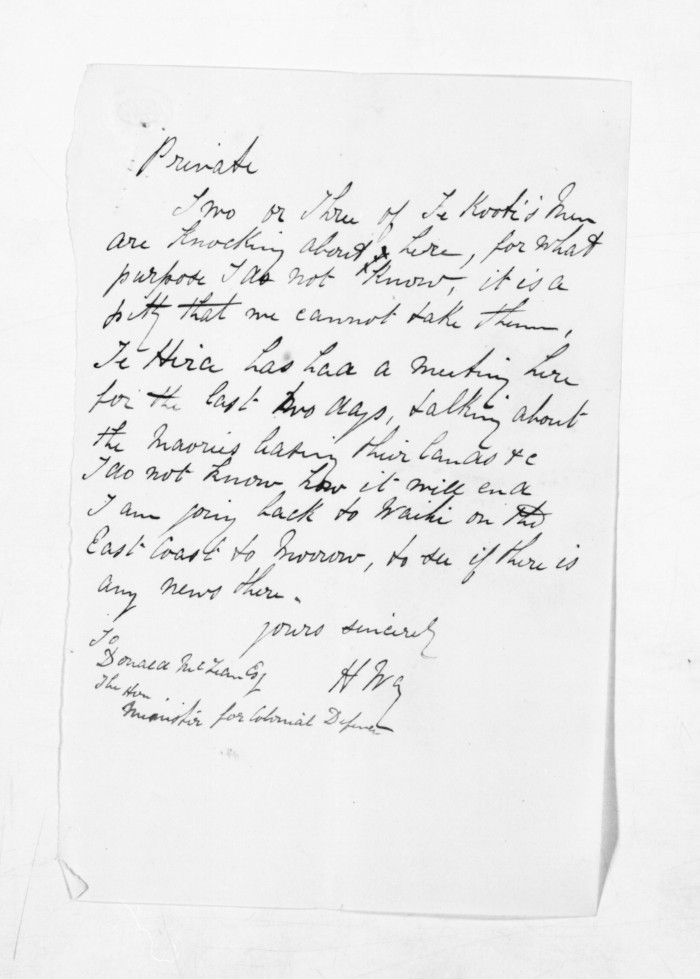 Private
Two or Three of Te Kooti's Men
are Knocking about here, for what
purpose I do not Know, it is a
pitty that we cannot take them,
Te Hira has had a meeting here
for the last two days, talking about
the Maories leasing their lands &c
I do not know how it will end
I am going back to Waihi on the
East Coast to Morrow, to see if there is
any news there.
yours sincerely
H Way
To
Donald McLean Esq
The Hon
Minister for Colonial Defence